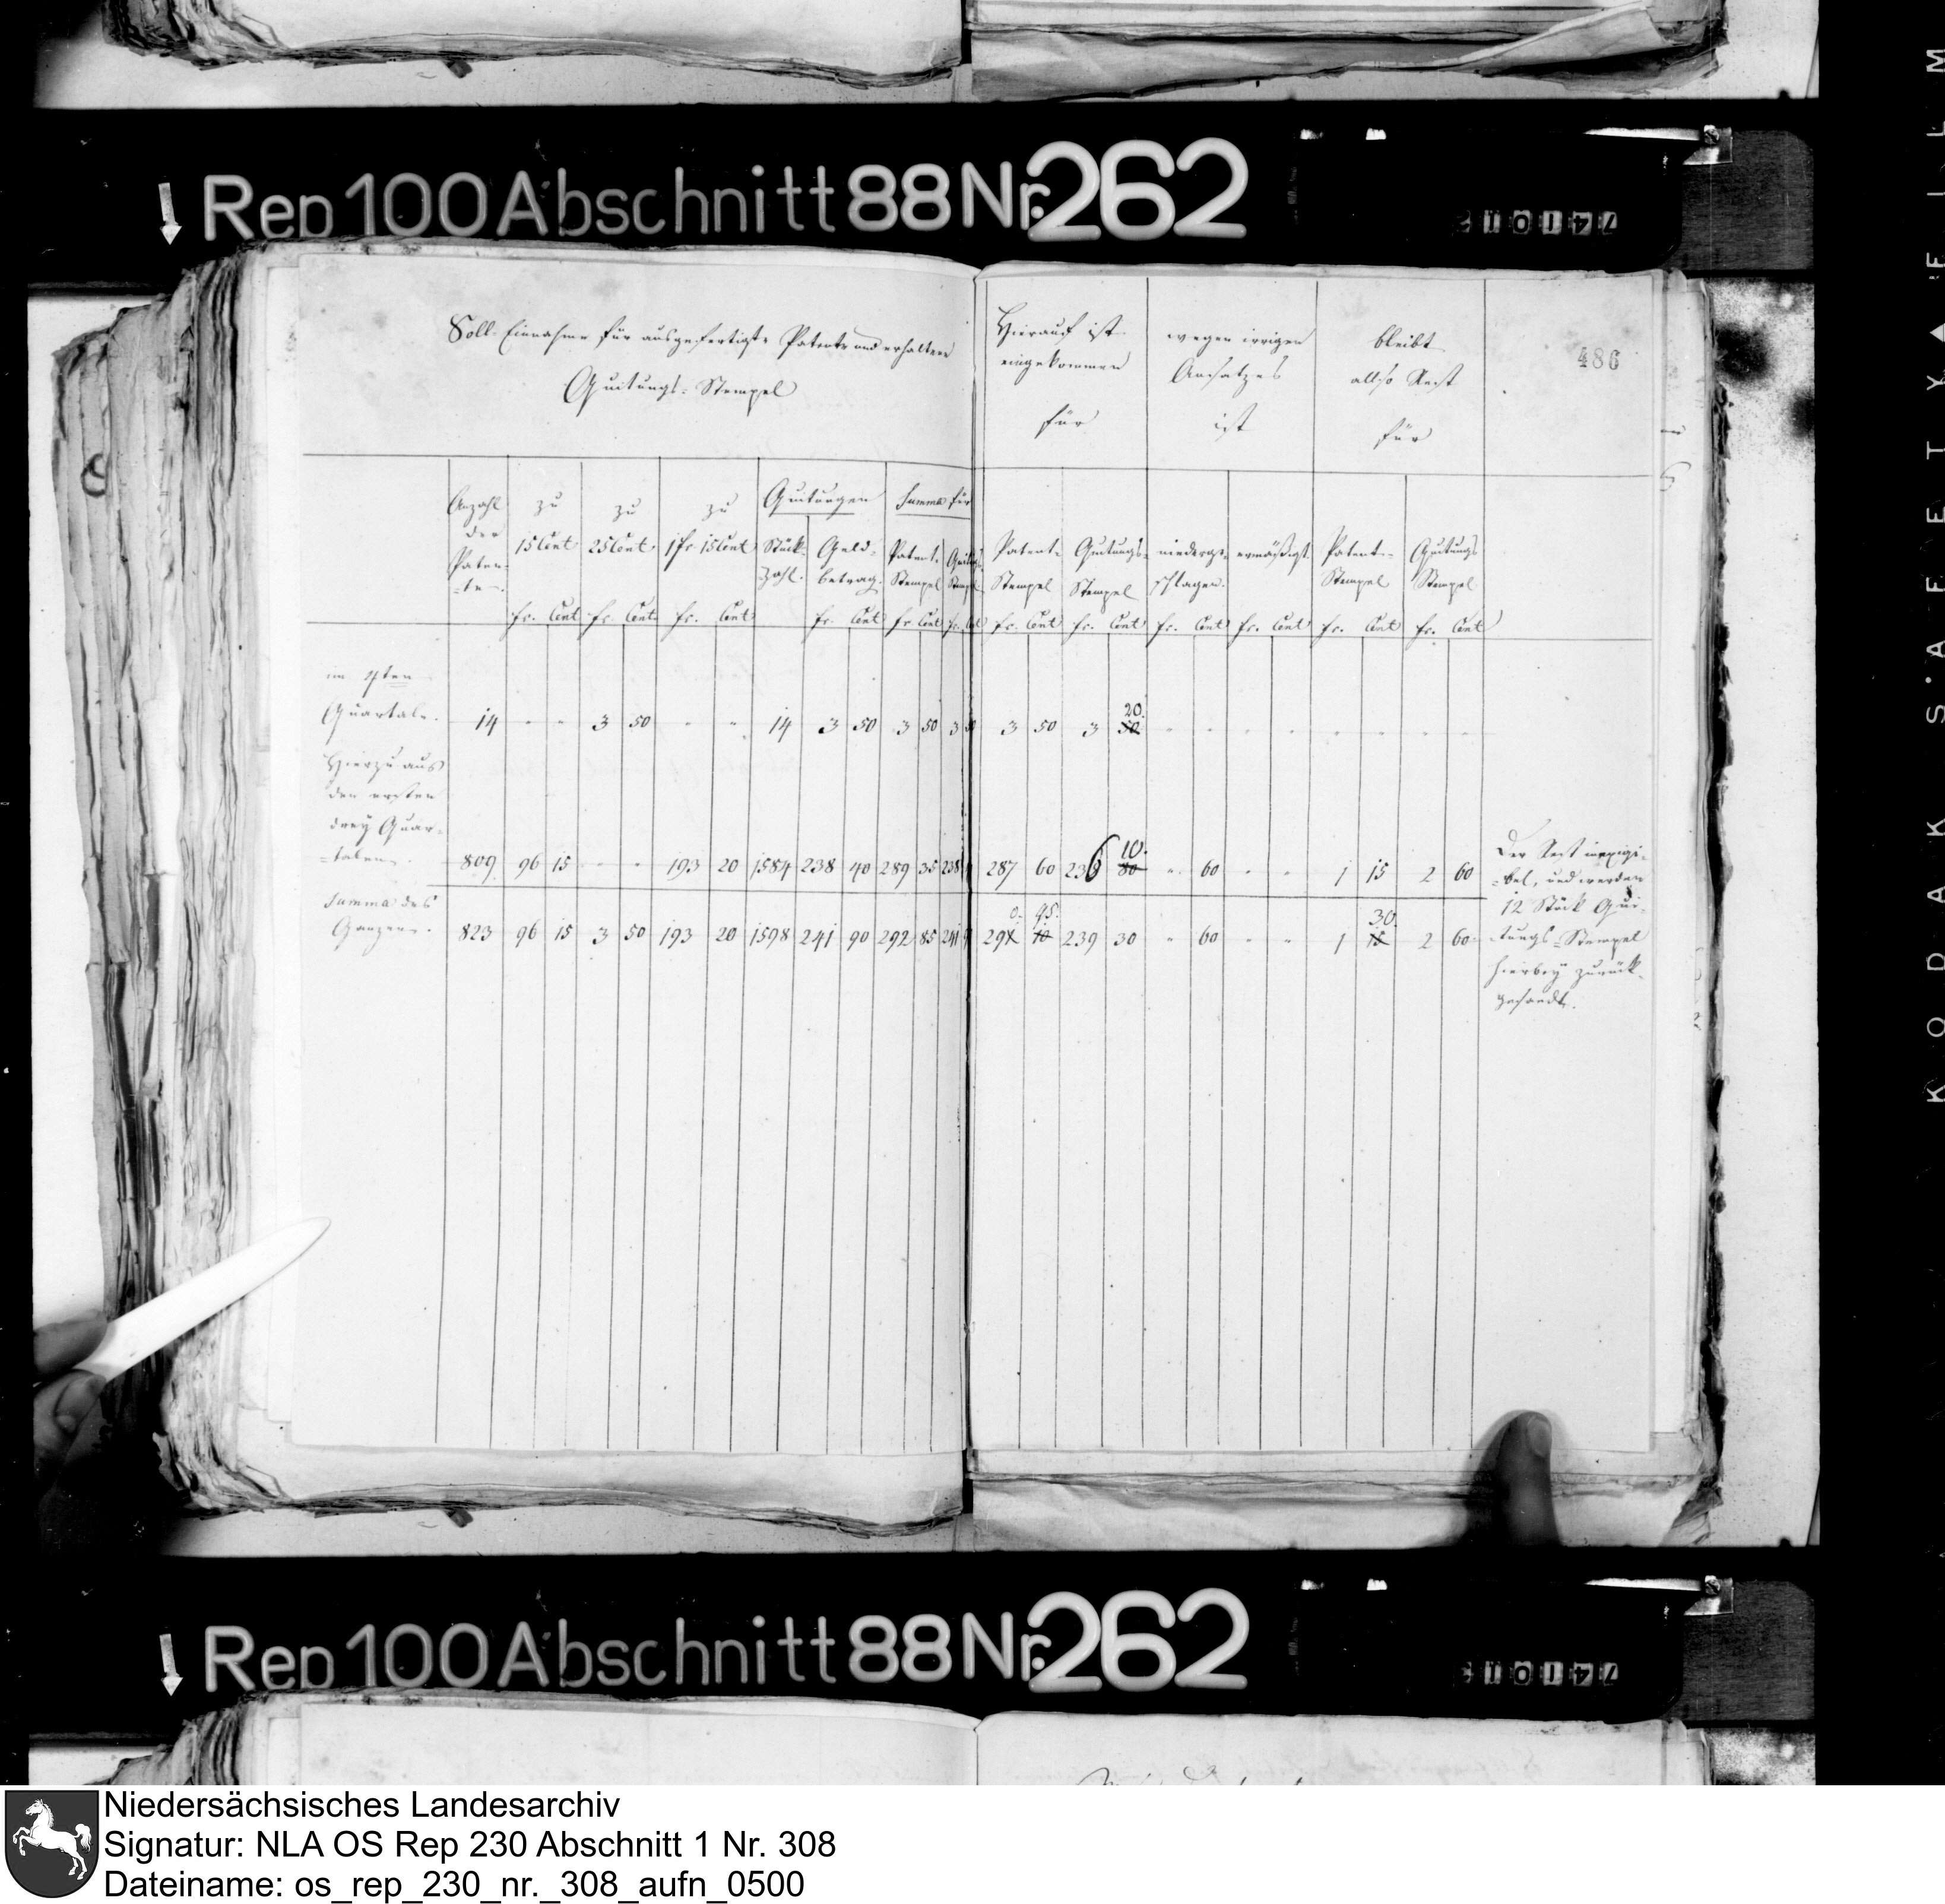 Rep 100 Abschnitt 88 Nr. 262
Soll-Einnahme für ausgefertigte Patente und erhaltene
Quitungs-Stempel
Hierauf ist
eingekommen
für
wegen irrigen
Ansatzes
ist
bleibt
allso Rest
für
486
Anzahl
der
Paten-
te
zu
15 Cent
zu
25 Cent
zu
1 fr. 15 Cent
Quitungen
Stück-
zahl.
Geld-
betrag.
Summa für
Patent-
Stempel
Quitungs-
Stempel
Patent-
Stempel
Quitungs-
Stempel
niederge-
schlagen.
ermäßigt.
Patent-
Stempel
Quitungs
Stempel
fr. Cent fr. Cent fr. Cent fr. Cent fr. Cent fr. Cent fr. Cent fr. Cent fr. Cent fr. Cent fr. Cent fr. Cent
im 4ten
20.
Quartale. 14 - - 3 50 - - 14 3 50 3 50 3 50 3 50 3 50
Hierzu aus
den ersten
drey Quar-
10.
-talen. 809 96 15 - - 193 20 1584 238 40 289 35 238 287 60 236 80 - 60 - - 1 15 2 60
Summa des
0. 95. 30.
Ganzen. 823 96 15 3 50 193 20 1598 241 90 292 85 241 291 10 239 30 - 60 - - 1 15 2 60
Der Rest inexigi-
-bel, und werden
12 Stück Qui-
-tungs-Stempel
hierbey zurück-
gesandt.
Rep 100 Abschnitt 88 Nr. 262
KODAK S·AFETY FILM
Niedersächsisches Landesarchiv
Signatur: NLA OS Rep 230 Abschnitt 1 Nr. 308
Dateiname: os_rep_230_nr._308_aufn_0500